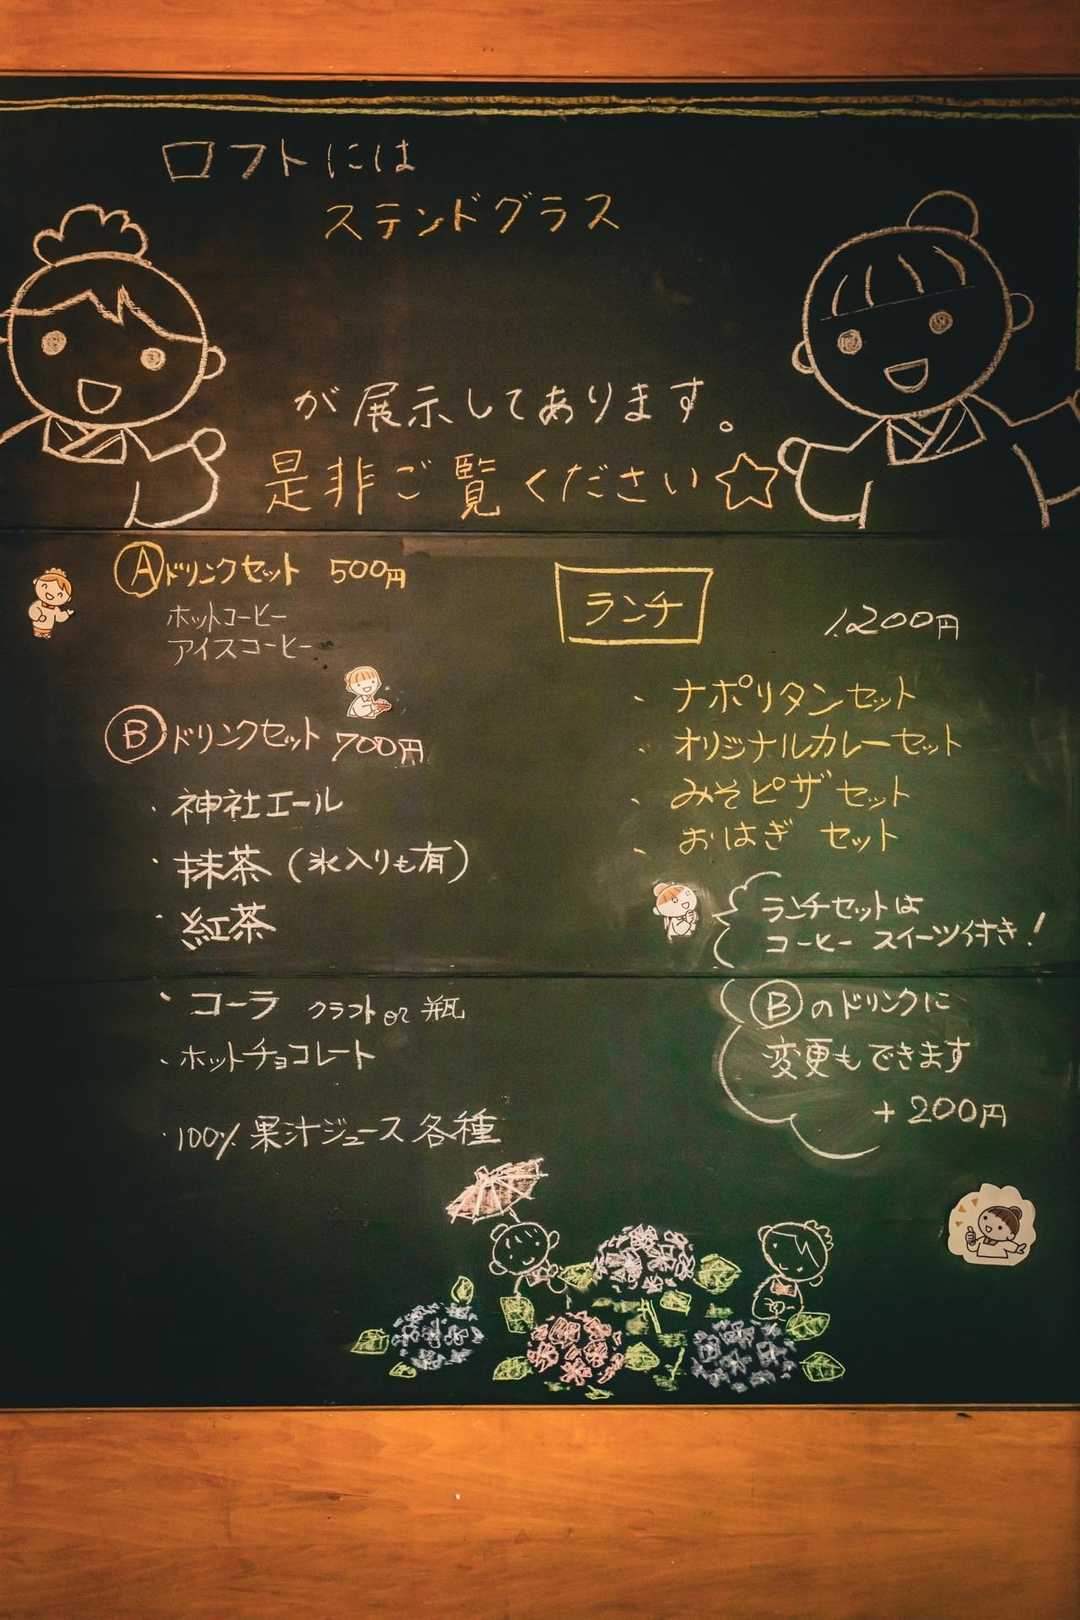 ロフトには
ステンドグラス
が展示してあります。
是非ご覧ください☆
Ⓐドリンクセット 500円
ホットコーヒー
アイスコーヒー
Ⓑドリンクセット 700円
・神社エール
・抹茶(氷入りも有)
・紅茶
・コーラ クラフトor瓶
・ホットチョコレート
・100% 果汁ジュース各種
ランチ 1,200円
、ナポリタンセット
、オリジナルカレーセット
、みそピザセット
、おはぎ セット
ランチセットは
コーヒー スイーツ付き!
Ⓑのドリンクに
変更もできます
+200円